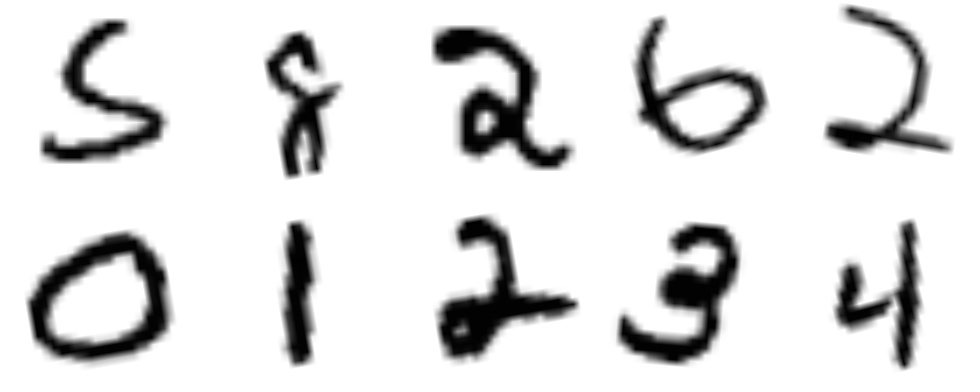 5 8 2 6 2
0 1 2 3 4